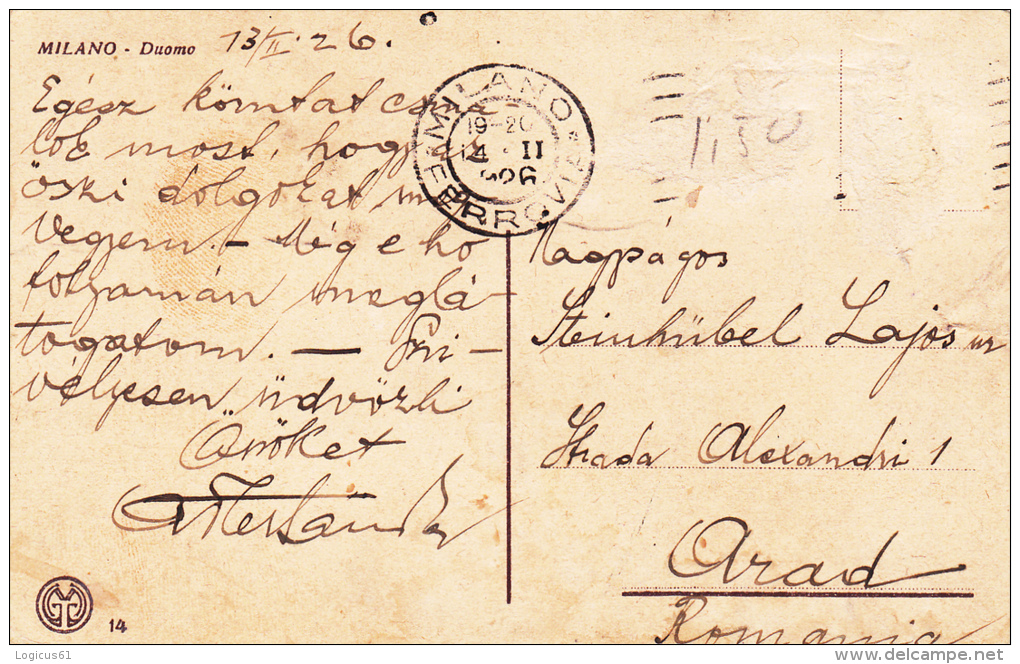 MILANO - Duomo 13/II. 26.
Egész körutat csiná-
lok most, hogy
őszi dolgozat
Vegyem. — Még e hó
folyamán meglá-
togatom. — Szi-
vélyesen üdvözli
Önöket
MILANO
FERROVIA
19-20
14 · II
926
1,50
1
Nagyságos
Steinhübel Lajos úr
Strada Alexandri 1
Arad
Romania
14
Logicus61
delcampe.net